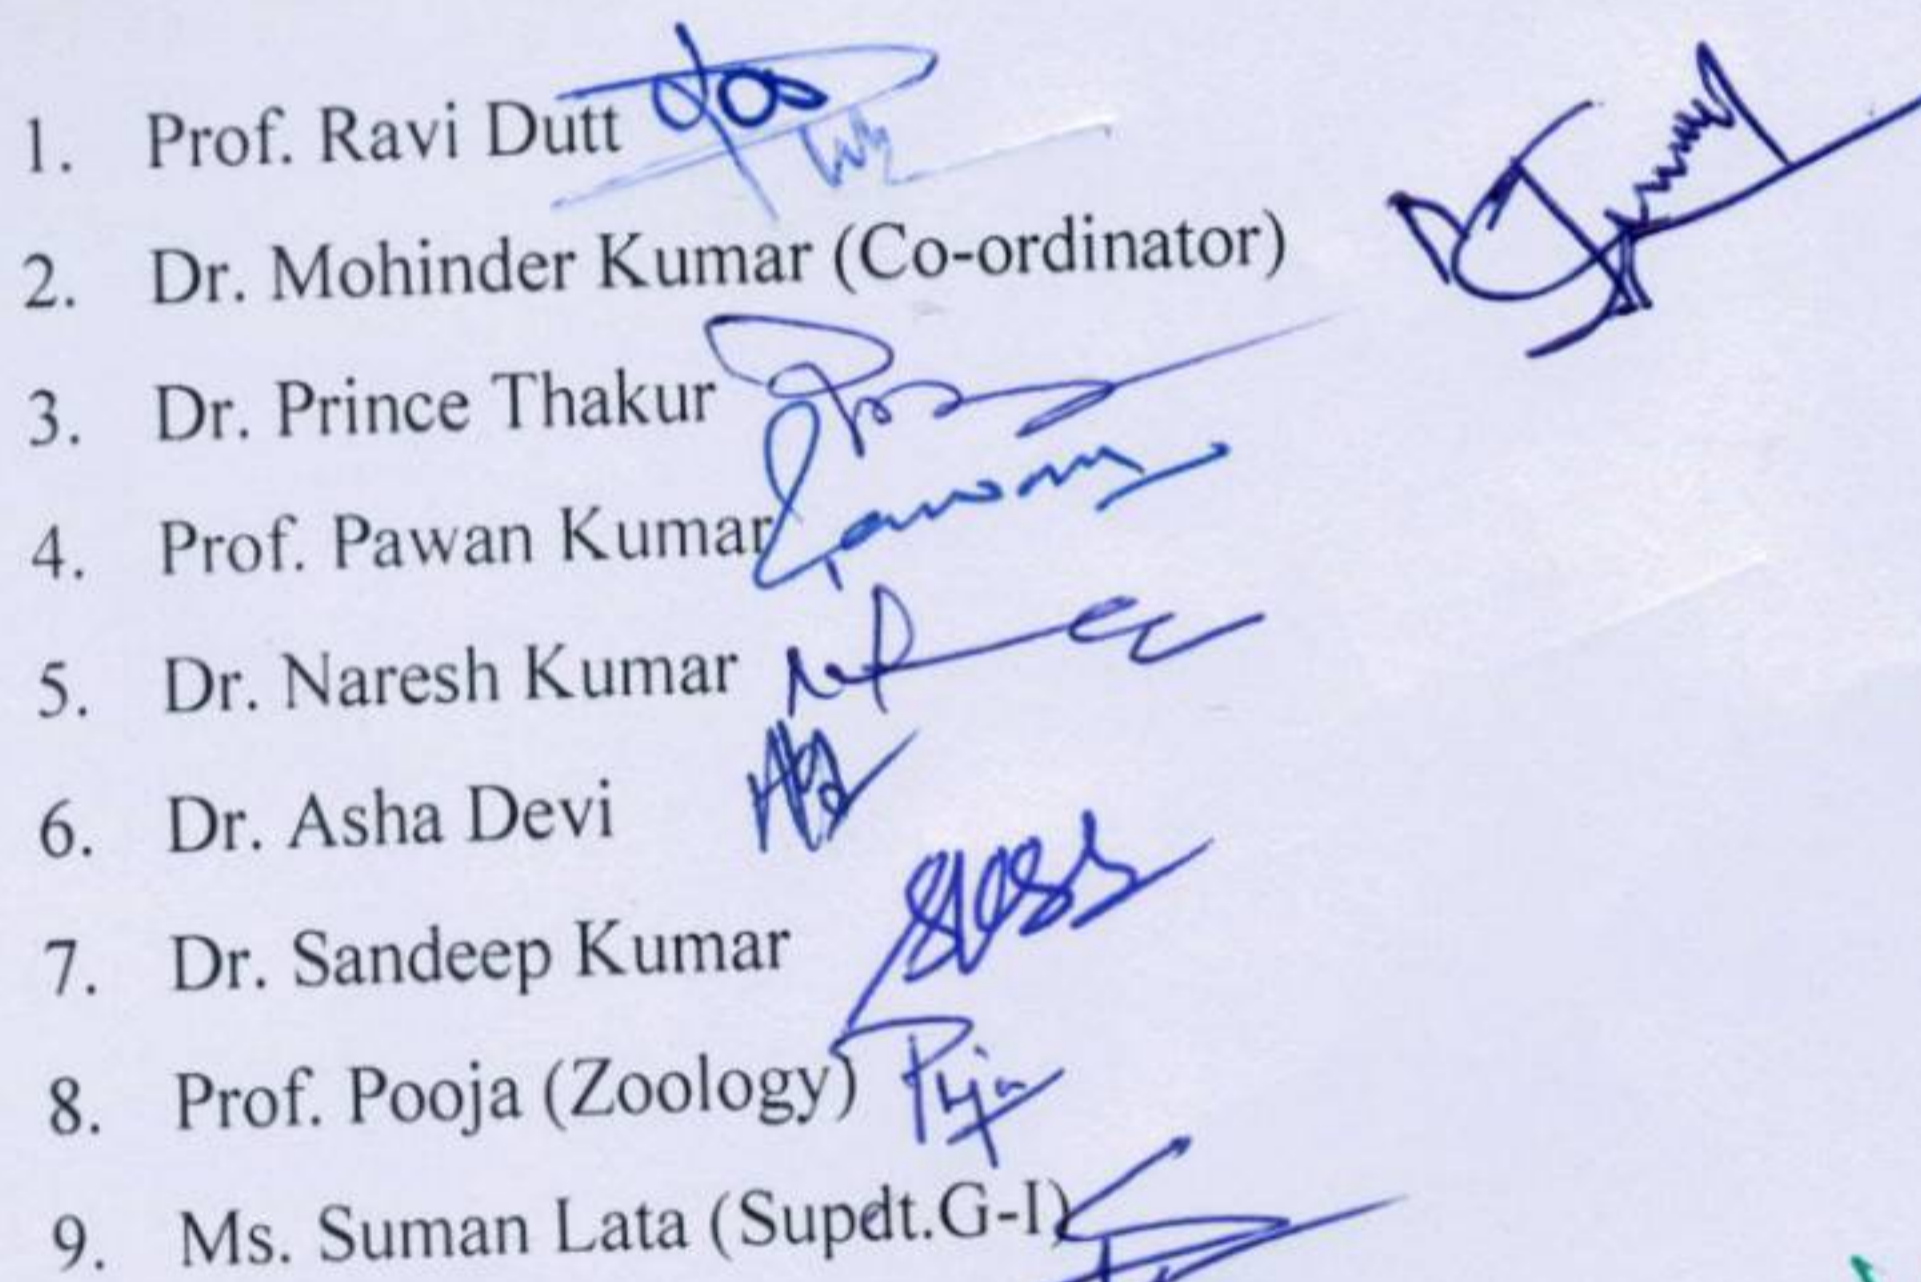 1. Prof. Ravi Dutt
2. Dr. Mohinder Kumar (Co-ordinator)
3. Dr. Prince Thakur
4. Prof. Pawan Kumar
5. Dr. Naresh Kumar
6. Dr. Asha Devi
7. Dr. Sandeep Kumar
8. Prof. Pooja (Zoology)
9. Ms. Suman Lata (Supdt.G-I)